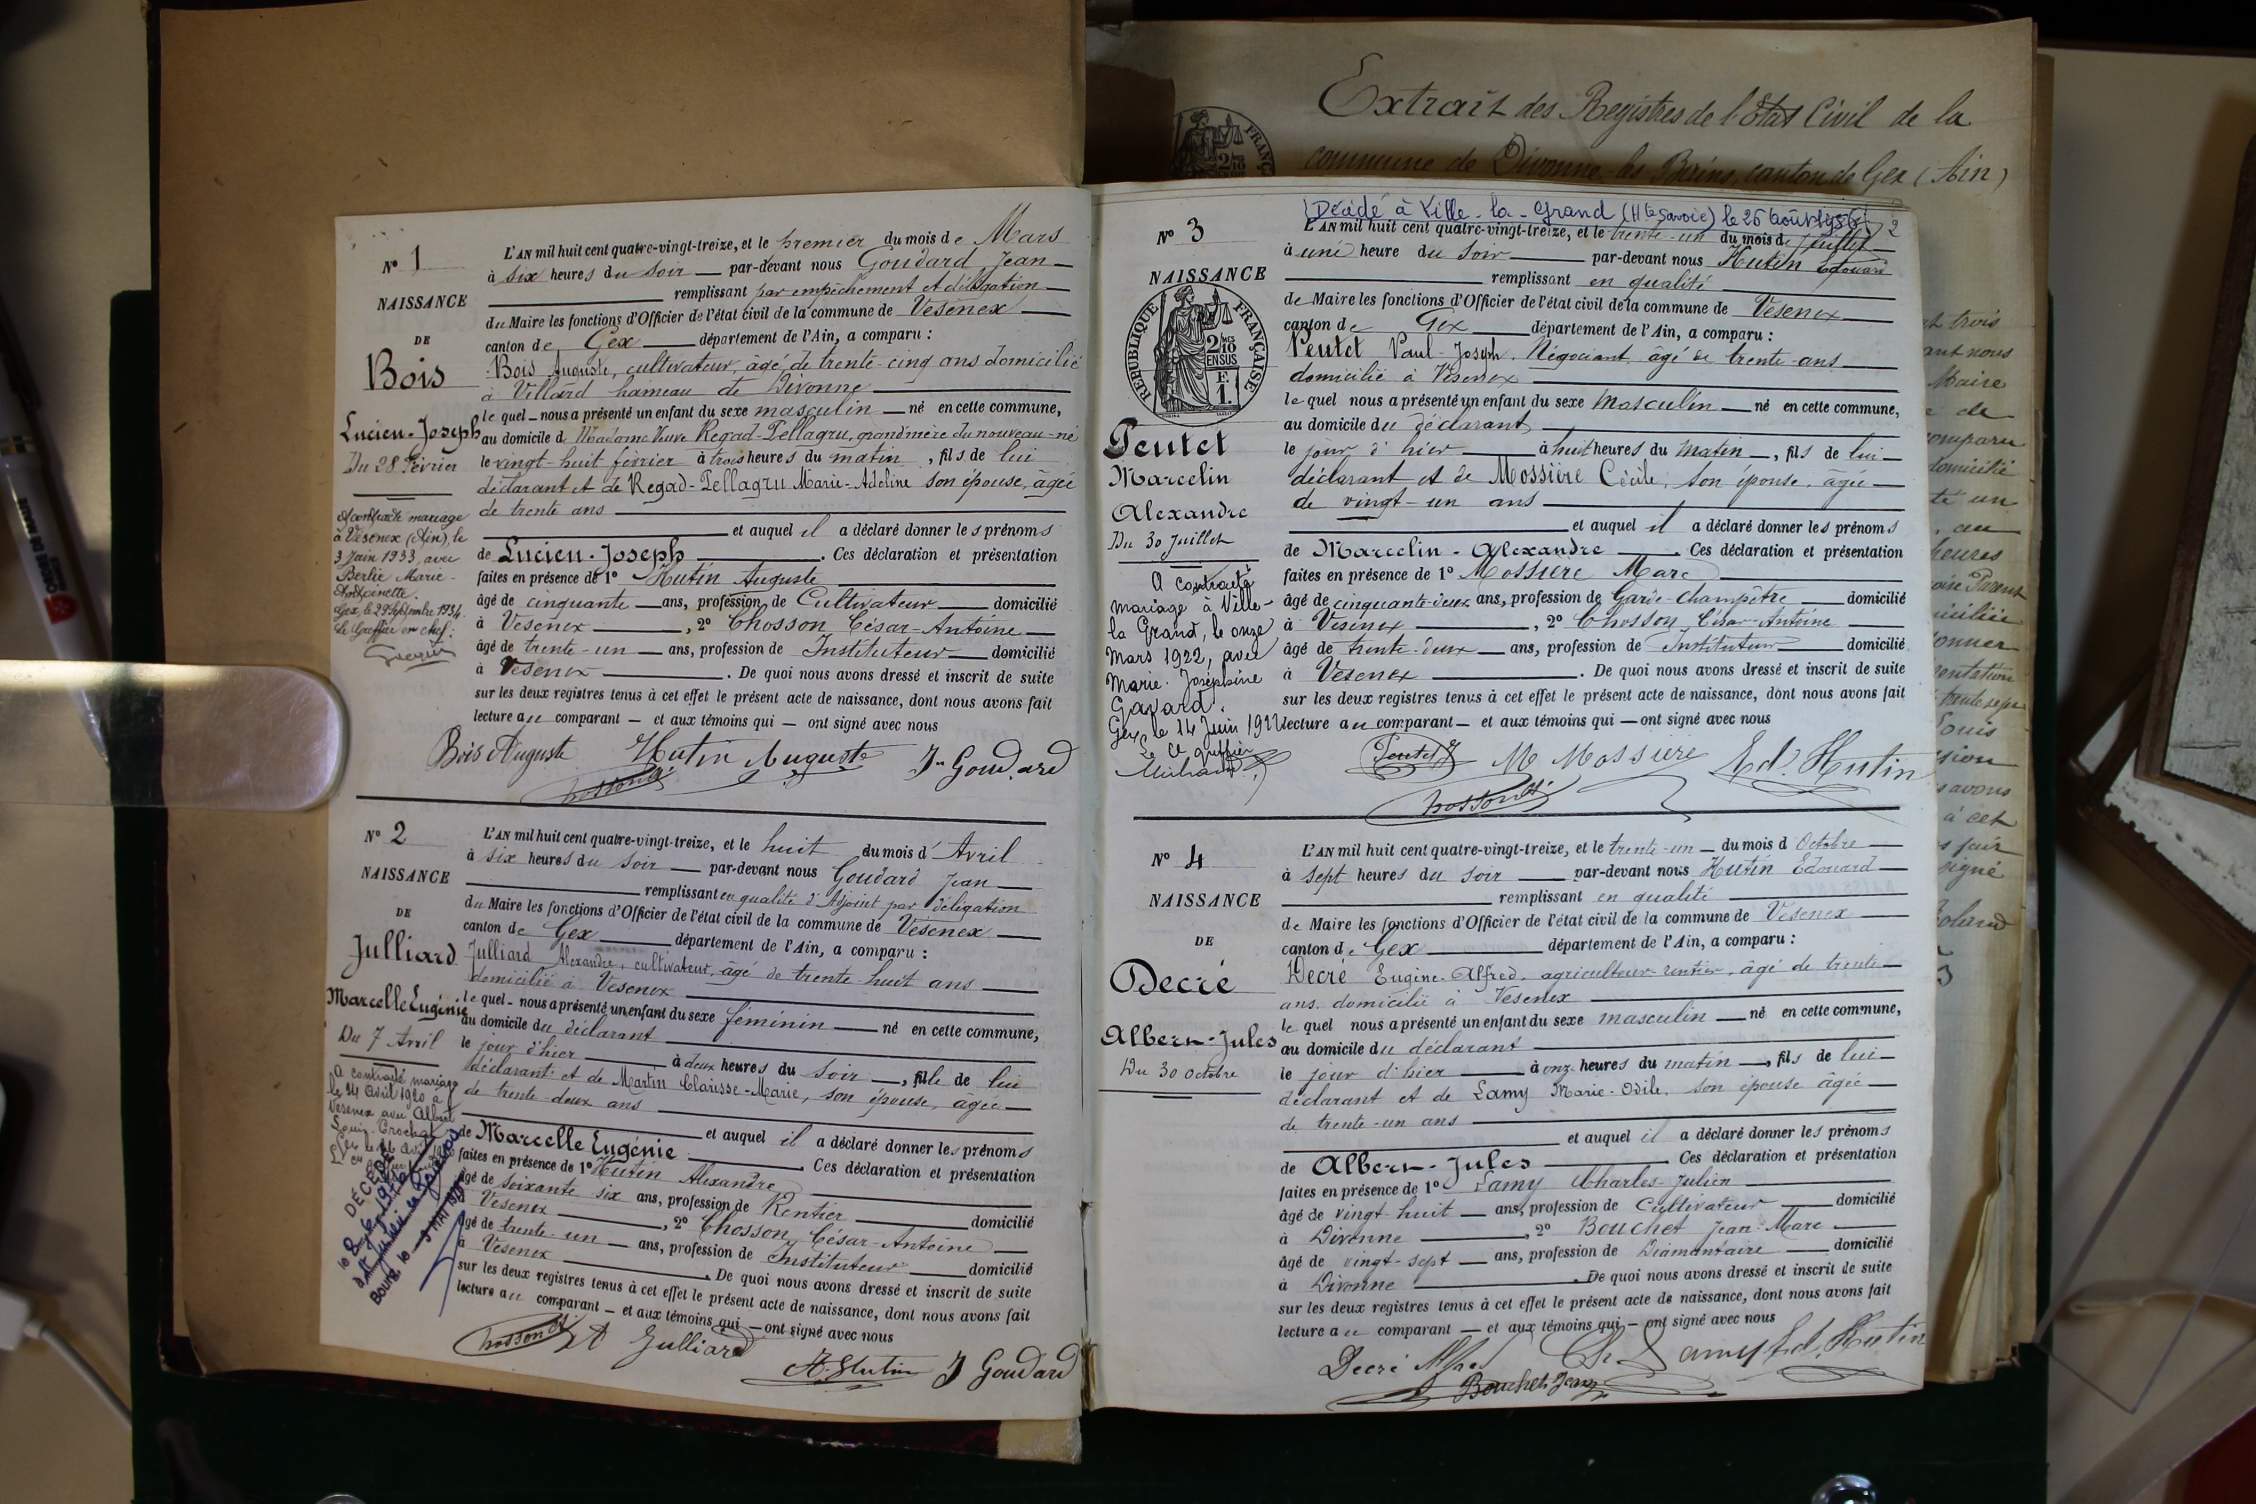 Extrait des Registres de l'Etat Civil de la
commune de Divonne-les-Bains, canton de Gex (Ain)
N° 1
NAISSANCE
DE
Bois
Lucien-Joseph
Du 28 Février
A contracté mariage
à Vésenex (Ain), le
3 Juin 1933, avec
Berlie Marie-
Antoinette.
Gex, le 29 Septembre 1934.
Le Greffier en chef:
L'AN mil huit cent quatre-vingt-treize, et le premier du mois de Mars
à six heures du soir par-devant nous Goudard Jean
remplissant par empêchement et délégation
du Maire les fonctions d'Officier de l'état civil de la commune de Vésenex
canton de Gex département de l'Ain, a comparu :
Bois Auguste, cultivateur, âgé de trente-cinq ans domicilié
à Villard hameau de Divonne
le quel nous a présenté un enfant du sexe masculin né en cette commune,
au domicile de Madame Veuve Regad-Pellagru, grand'mère du nouveau-né
le vingt-huit février à trois heures du matin, fils de lui
déclarant et de Regad-Pellagru Marie-Adeline son épouse, âgée
de trente ans
et auquel il a déclaré donner les prénoms
de Lucien-Joseph. Ces déclaration et présentation
faites en présence de 1° Hutin Auguste
âgé de cinquante ans, profession de Cultivateur domicilié
à Vésenex, 2° Chosson César-Antoine
âgé de trente-un ans, profession de Instituteur domicilié
à Vésenex. De quoi nous avons dressé et inscrit de suite
sur les deux registres tenus à cet effet le présent acte de naissance, dont nous avons fait
lecture au comparant et aux témoins qui ont signé avec nous
Bois Auguste Hutin Auguste Jn Goudard
Chosson
N° 2
NAISSANCE
DE
Julliard
Marcelle Eugénie
Du 7 Avril
A contracté mariage
le 24 Avril 1920 à
Vesenex avec Albert
Louis Crochat
DÉCÉDÉ
L'AN mil huit cent quatre-vingt-treize, et le huit du mois d'Avril
à six heures du soir par-devant nous Goudard Jean
remplissant en qualité d'Adjoint par délégation
du Maire les fonctions d'Officier de l'état civil de la commune de Vésenex
canton de Gex département de l'Ain, a comparu :
Julliard Alexandre, cultivateur, âgé de trente huit ans
domicilié à Vésenex
le quel nous a présenté un enfant du sexe féminin né en cette commune,
au domicile du déclarant
le jour d'hier à deux heures du soir, fille de lui
déclarant et de Martin Clarisse-Marie, son épouse, âgée
de trente-deux ans
et auquel il a déclaré donner les prénoms
de Marcelle Eugénie. Ces déclaration et présentation
faites en présence de 1° Hutin Alexandre
âgé de soixante six ans, profession de Rentier domicilié
à Vesenex, 2° Chosson César-Antoine
âgé de trente-un ans, profession de Instituteur domicilié
à Vesenex. De quoi nous avons dressé et inscrit de suite
sur les deux registres tenus à cet effet le présent acte de naissance, dont nous avons fait
lecture au comparant et aux témoins qui ont signé avec nous
Chosson A Julliard
A. Hutin J Goudard
Décédé à Ville-la-Grand (Hte Savoie) le 26 août 1956 2
N° 3
NAISSANCE
RÉPUBLIQUE FRANÇAISE
Peutet
Marcelin
Alexandre
Du 30 Juillet
A contracté
mariage à Ville-
la Grand, le onze
Mars 1922, avec
Marie-Joséphine
Gavard.
Gex, le 14 Juin 1922
Le Cis greffier
L'AN mil huit cent quatre-vingt-treize, et le trente-un du mois de Juillet
à une heure du soir par-devant nous Hutin Edouard
remplissant en qualité
de Maire les fonctions d'Officier de l'état civil de la commune de Vésenex
canton de Gex département de l'Ain, a comparu :
Peutet Paul-Joseph. Négociant, âgé de trente-ans
domicilié à Vésenex
le quel nous a présenté un enfant du sexe Masculin né en cette commune,
au domicile du déclarant
le jour d'hier à huit heures du matin, fils de lui
déclarant et de Mossière Cécile, son épouse, âgée
de vingt-un ans
et auquel il a déclaré donner les prénoms
de Marcelin-Alexandre. Ces déclaration et présentation
faites en présence de 1° Mossière Marc
âgé de cinquante-deux ans, profession de Garde-champêtre domicilié
à Vésenex, 2° Chosson César-Antoine
âgé de trente-deux ans, profession de Instituteur domicilié
à Vésenex. De quoi nous avons dressé et inscrit de suite
sur les deux registres tenus à cet effet le présent acte de naissance, dont nous avons fait
lecture au comparant et aux témoins qui ont signé avec nous
Peutet J M Mossiere Ed. Hutin
Chosson
N° 4
NAISSANCE
DE
Decré
Albern-Jules
Du 30 octobre
L'AN mil huit cent quatre-vingt-treize, et le trente-un du mois d'Octobre
à sept heures du soir par-devant nous Hutin Edouard
remplissant en qualité
de Maire les fonctions d'Officier de l'état civil de la commune de Vésenex
canton de Gex département de l'Ain, a comparu :
Decré Eugène-Alfred, agriculteur-rentier, âgé de trente
ans, domicilié à Vesenex
le quel nous a présenté un enfant du sexe masculin né en cette commune,
au domicile du déclarant
le jour d'hier à onze heures du matin, fils de lui
déclarant et de Lamy Marie-Odile, son épouse âgée
de trente-un ans
et auquel il a déclaré donner les prénoms
de Albern-Jules. Ces déclaration et présentation
faites en présence de 1° Lamy Charles-Julien
âgé de vingt-huit ans, profession de Cultivateur domicilié
à Divonne, 2° Bouchet Jean-Marc
âgé de vingt-sept ans, profession de Diamantaire domicilié
à Divonne. De quoi nous avons dressé et inscrit de suite
sur les deux registres tenus à cet effet le présent acte de naissance, dont nous avons fait
lecture au comparant et aux témoins qui ont signé avec nous
Decré Alfred Ch Lamy Ed. Hutin
Bouchet Jean